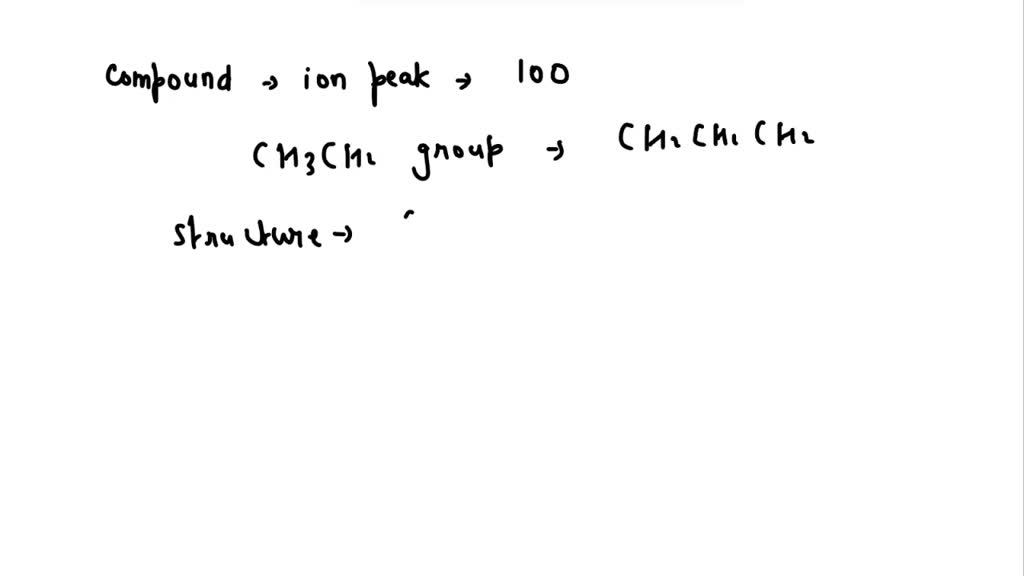 Compound → ion peak → 100
CH3CH2 group → CH2 CH2 CH2
structure →